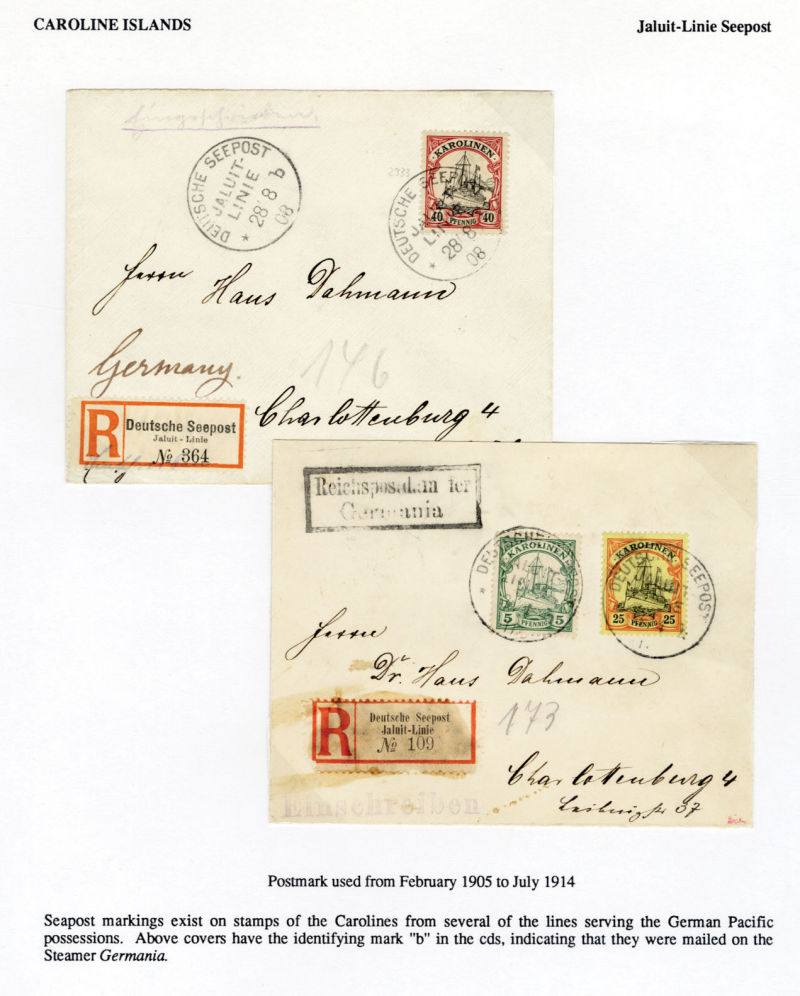 CAROLINE ISLANDS
Jaluit-Linie Seepost
Eingeschrieben.
DEUTSCHE SEEPOST
JALUIT-
LINIE
28 8 b
* 08
2933
KAROLINEN
40 PFENNIG 40
DEUTSCHE SEEPOST
28 8
* 08
Herrn Hans Dahmann
146
Germany.
R
Deutsche Seepost
Jaluit - Linie
№ 364
Charlottenburg 4
Reichspostdam
Germania
KAROLINEN
5 PFENNIG 5
DEUTSCHE
KAROLINEN
25 PFENNIG 25
DEUTSCHE SEEPOST
Herrn
Dr. Hans Dahmann
173
R
Deutsche Seepost
Jaluit-Linie
№ 109
Charlottenburg 4
Leibnizstr 37
Einschreiben
Postmark used from February 1905 to July 1914
Seapost markings exist on stamps of the Carolines from several of the lines serving the German Pacific
possessions. Above covers have the identifying mark "b" in the cds, indicating that they were mailed on the
Steamer Germania.